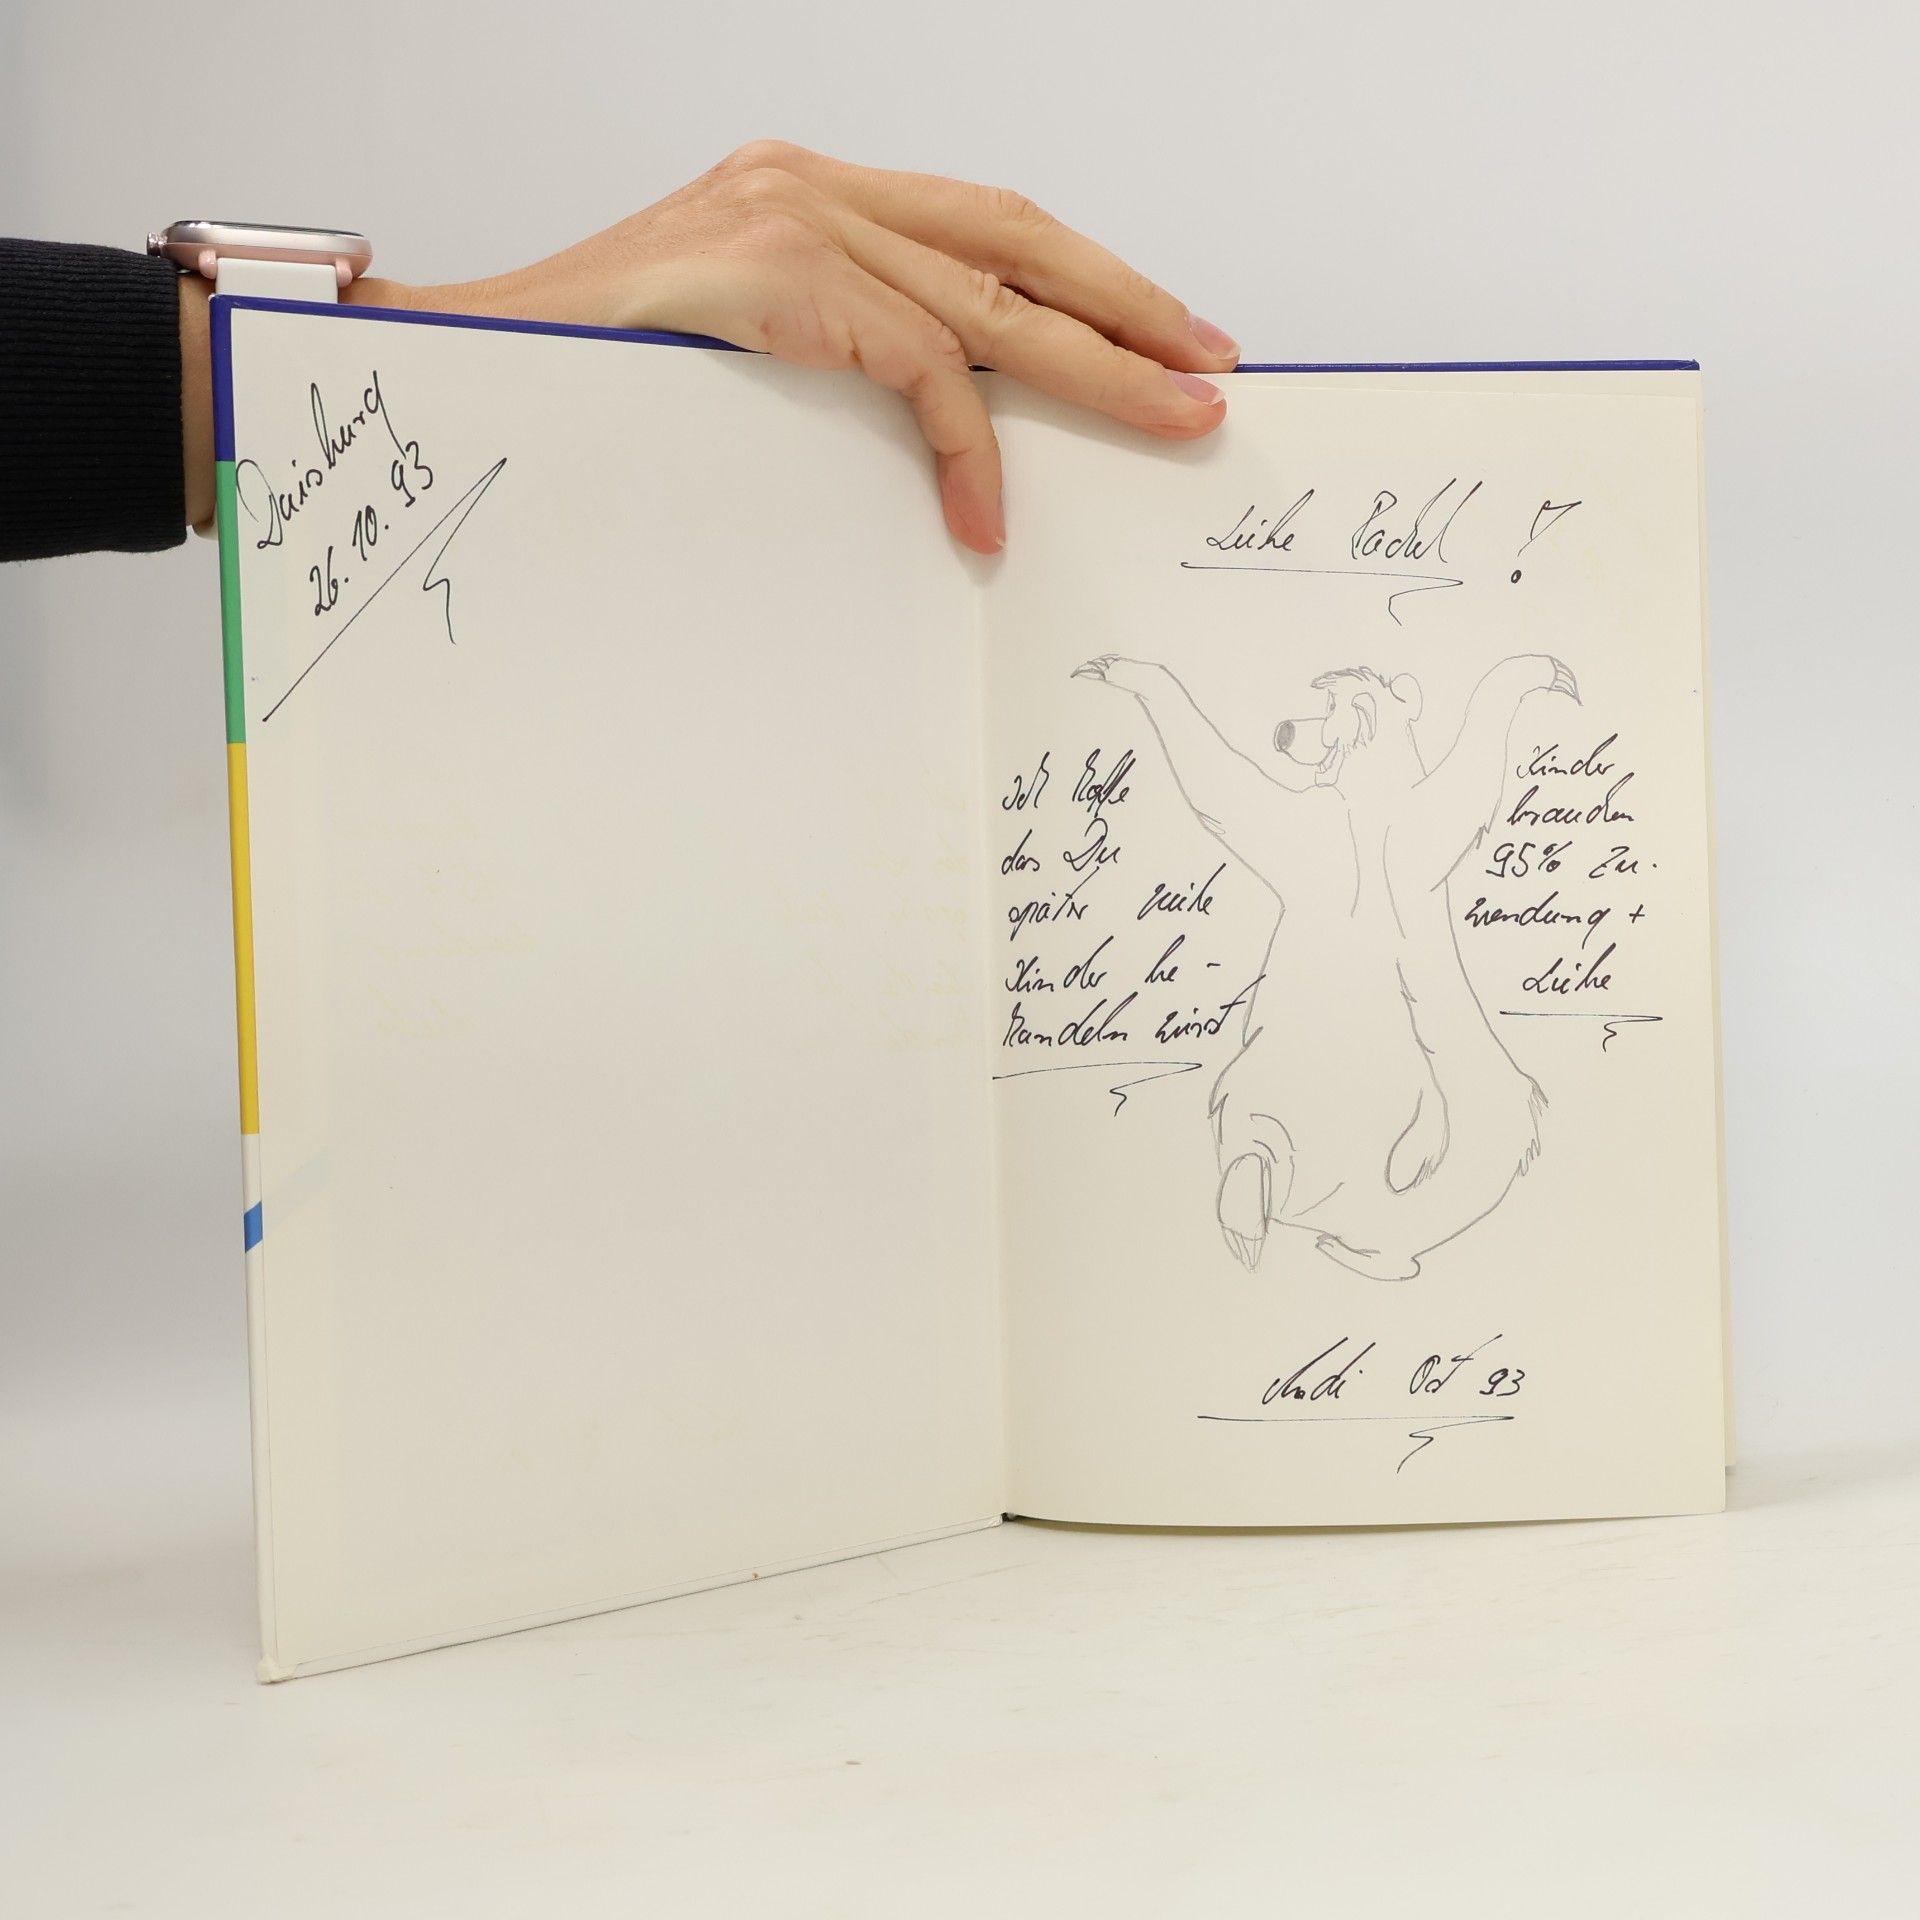 Duisburg
26.10.93
Liebe Rachel!
Ich hoffe
das Du
später viele
Kinder be-
handeln wirst
Kinder
brauchen
95% Zu-
wendung +
Liebe
Andi Oct 93